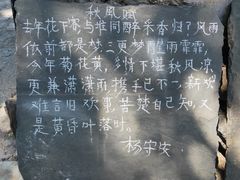 秋風賦
去年花下客与谁同醉采香归了风雨
依前都是梦三更梦醒雨霏霏,
今年菊花黄,多情下堪秋风凉,
更兼潇潇雨携手已不一新欢
难言旧欢事苦楚自己知又
是黄昏叶落时。
杨守安